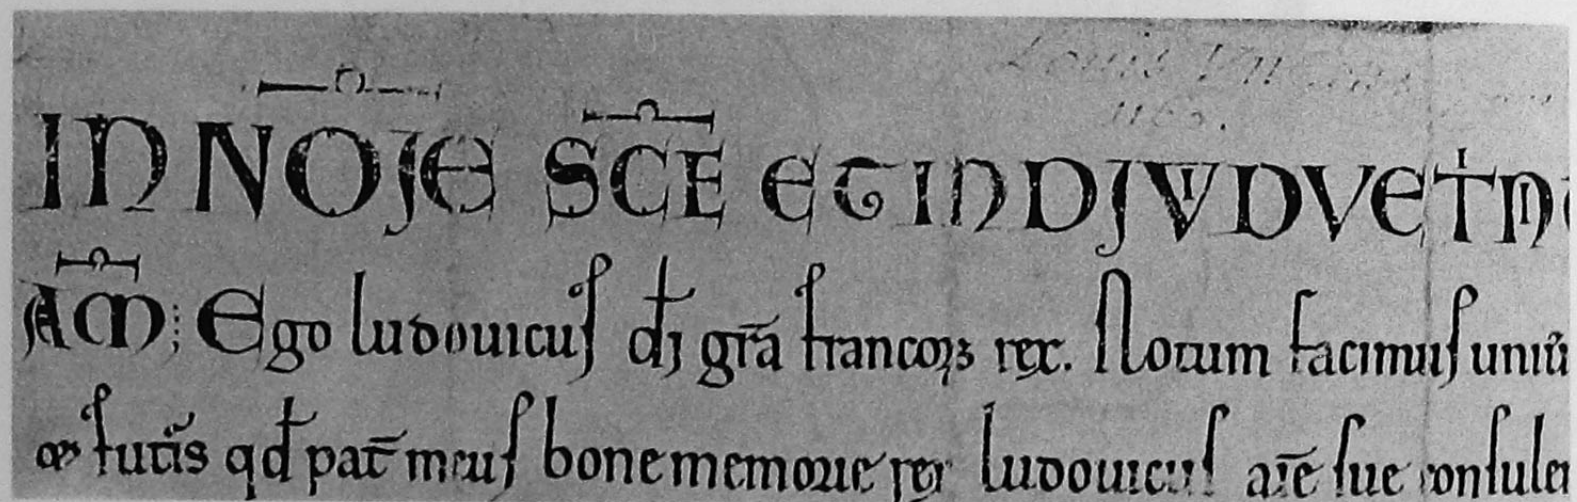 Louis VII
1163.
IN NOJE SCE ET INDJVDVE TN
AM: Ego ludouicus dj gra francoꝝ rex. Notum facimus uniu
futis qd pat meus bone memorie rex ludouicus aie sue consule